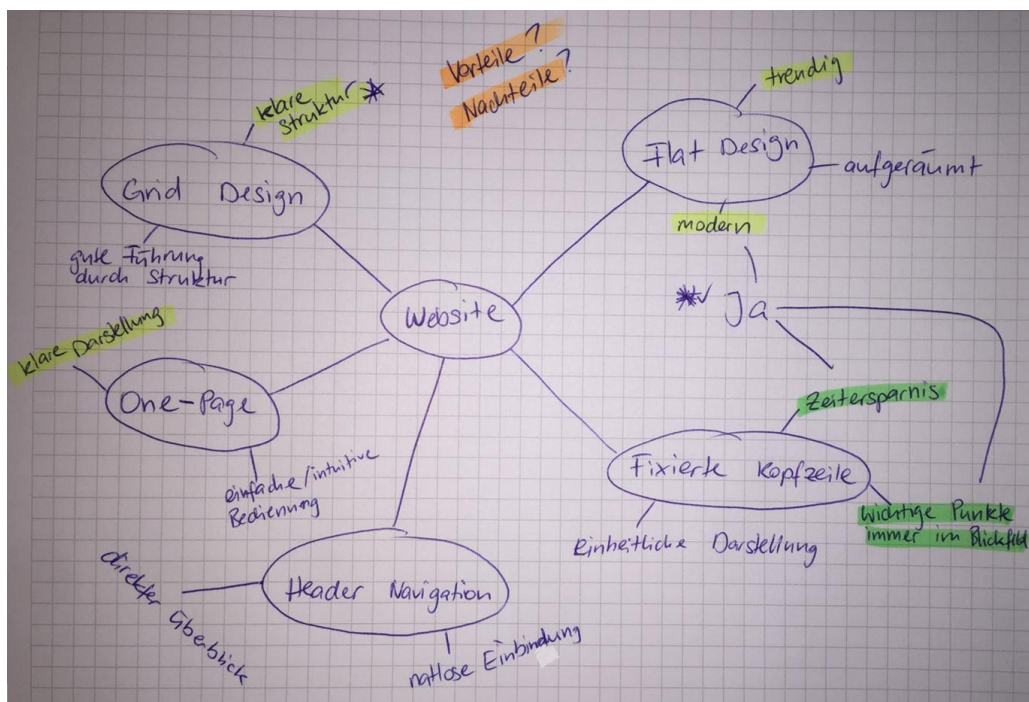 Vorteile?
Nachteile?
klare
Struktur *
Grid Design
gute Führung
durch Struktur
trendig
Flat Design
aufgeräumt
modern
Ja
Website
klare Darstellung
One-Page
einfache/intuitive
Bedienung
Zeitersparnis
Fixierte Kopfzeile
wichtige Punkte
immer im Blickfeld
Einheitliche Darstellung
direkter
Überblick
Header Navigation
natlose Einbindung